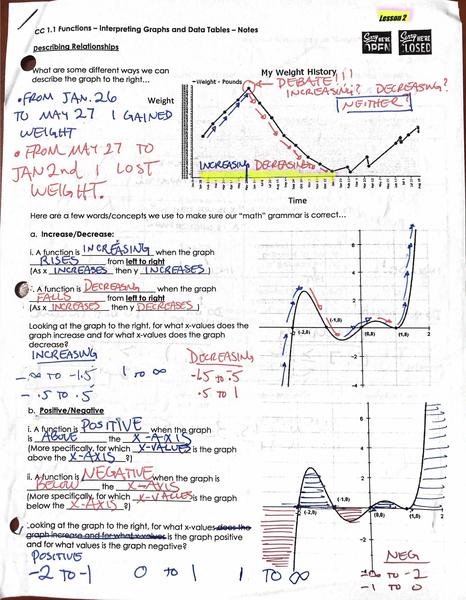 Lesson 2
CC 1.1 Functions – Interpreting Graphs and Data Tables – Notes
Sorry WE'RE OPEN
Sorry WE'RE CLOSED
Describing Relationships
What are some different ways we can
describe the graph to the right...
• FROM JAN. 26
TO MAY 27 I GAINED
WEIGHT
• FROM MAY 27 TO
JAN 2nd I LOST
WEIGHT.
My Weight History
Weight - Pounds
DEBATE!!!
INCREASING? DECREASING?
NEITHER?
Weight
INCREASING DECREASING
Time
Here are a few words/concepts we use to make sure our "math" grammar is correct...
a. Increase/Decrease:
i. A function is INCREASING when the graph
RISES from left to right
(As x INCREASES then y INCREASES)
ii. A function is DECREASING when the graph
FALLS from left to right
(As x INCREASES then y DECREASES)
Looking at the graph to the right, for what x-values does the
graph increase and for what x-values does the graph
decrease?
INCREASING DECREASING
-∞ to -1.5 1 to ∞ -1.5 to -.5
-.5 to .5 .5 to 1
(-2,0)
(-1,0)
(0,0)
(1,0)
2
-2
-4
b. Positive/Negative
i. A function is POSITIVE when the graph
is ABOVE the X-AXIS
(More specifically, for which X-VALUES is the graph
above the X-AXIS ?)
ii. A function is NEGATIVE when the graph is
BELOW the X-AXIS
(More specifically, for which X-VALUES is the graph
below the X-AXIS ?)
Looking at the graph to the right, for what x-values does the
graph increase and for what x-values is the graph positive
and for what values is the graph negative?
POSITIVE
-2 TO -1 0 to 1 1 TO ∞
(-2,0)
(-1,0)
(0,0)
(1,0)
2
-2
NEG
-∞ to -2
-1 to 0